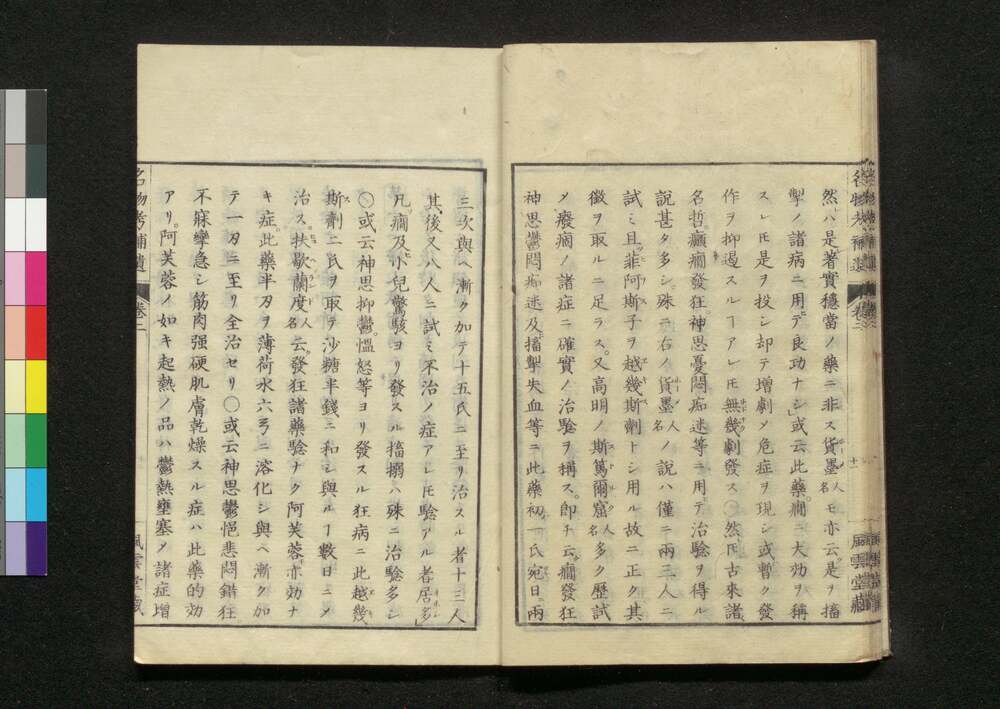 然ハ是著實穩當ノ藥ニ非ス貨墨人名モ亦云是ヲ搐
掣ノ諸病ニ用テ良功ナシ」或云此藥癎ニ大効ヲ稱
スレ𪜈是ヲ投シ却テ增劇メ危症ヲ現シ或暫ク發
作ヲ抑遏スルヿアレ𪜈無幾劇發ス○然𪜈古來諸
名哲癲癎發狂神思憂悶痴迷等ニ用テ治驗ヲ得ル
說甚タ多シ殊ニ右ノ貨墨人名ノ說ハ僅ニ兩三人ニ
試ミ且菲阿斯子ヲ越幾斯劑トシ用ル故ニ正ク其
徵ヲ取ルニ足ラス又高明ノ斯篤爾窟人名多ク歷試
メ癈癎ノ諸症ニ確實ノ治驗ヲ稱ス即チ云癎發狂
神思鬱悶痴迷及搐掣失血等ニ此藥初一氏宛日兩
三次與ヘ漸ク加テ十五氏ニ至リ治スル者十三人
其後又八人ニ試ミ不治ノ症アレ𪜈驗アル者居多」
凡癎及小兒驚駭ヨリ發スル搐搦ハ殊ニ治驗多シ
○或云神思抑鬱慍怒等ヨリ發スル狂病ニ此越幾
斯劑二氏ヲ取テ沙糖半錢ニ和シ與ルヿ數日ニメ
治ス扶歇蘭度人名云發狂諸藥驗ナク阿芙蓉亦効ナ
キ症此藥半刀ヲ薄荷水六弓ニ溶化シ與ヘ漸ク加
テ一刀ニ至リ全治セリ○或云神思鬱悒悲悶錯狂
不寐攣急シ筋肉强硬肌膚乾燥スル症ハ此藥的効
アリ阿芙蓉ノ如キ起熱ノ品ハ鬱熱壅塞メ諸症增
名物考補遺 卷二
風雲堂藏